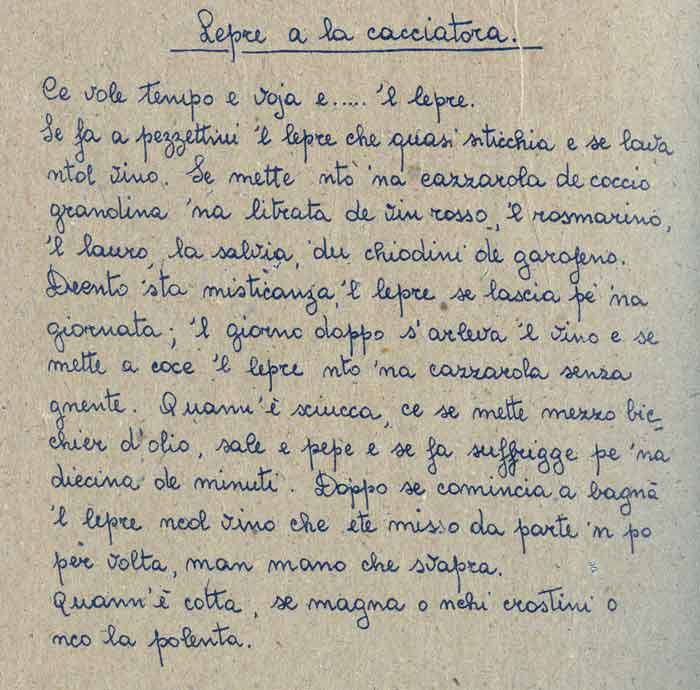 Lepre a la cacciatora.
Ce vole tempo e voja e..... 'l lepre.
Se fa a pezzettini 'l lepre che quasi sticchia e se lava
ntol vino. Se mette nto 'na cazzarola de coccio
grandina 'na litrata de vin rosso, 'l rosmarino,
'l lauro, la salvia, du chiodini de garofeno.
Drento 'sta misticanza, 'l lepre se lascia pe' 'na
giornata; 'l giorno doppo s'arleva 'l vino e se
mette a coce 'l lepre nto 'na cazzarola senza
gnente. Quann'è sciucca, ce se mette mezzo bic-
chier d'olio, sale e pepe e se fa suffrigge pe 'na
diecina de minuti. Doppo se comincia a bagnà
'l lepre ncol vino che ete misso da parte 'n po
per volta, man mano che svapra.
Quann'è cotta, se magna o nchi crostini o
nco la polenta.